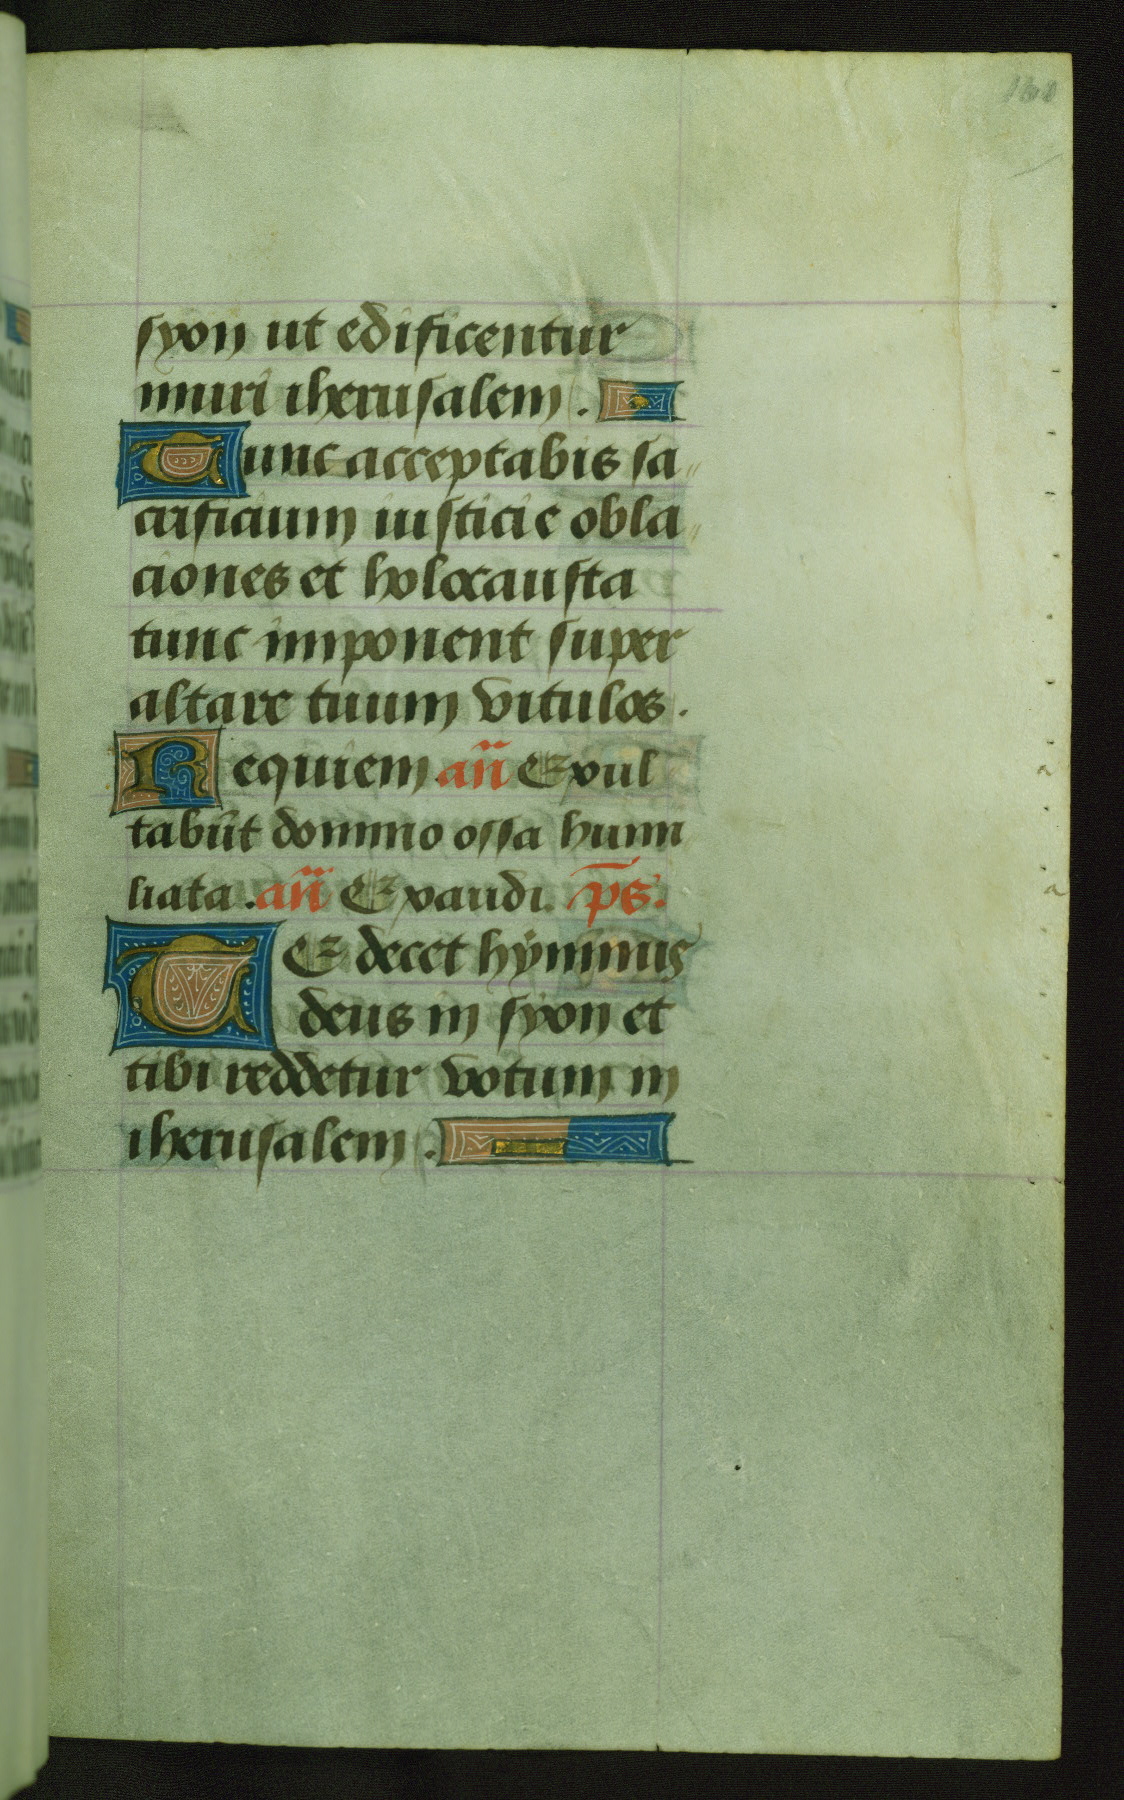 syon ut edificentur
muri iherusalem.
Tunc acceptabis sa
crificium iusticie obla
ciones et holocausta
tunc imponent super
altare tuum vitulos.
Requiem añ Exul
tabūt domino ossa humi
liata. añ Exaudi. p̄s.
TE decet hÿmnus
deus in syon et
tibi reddetur votum in
iherusalem.